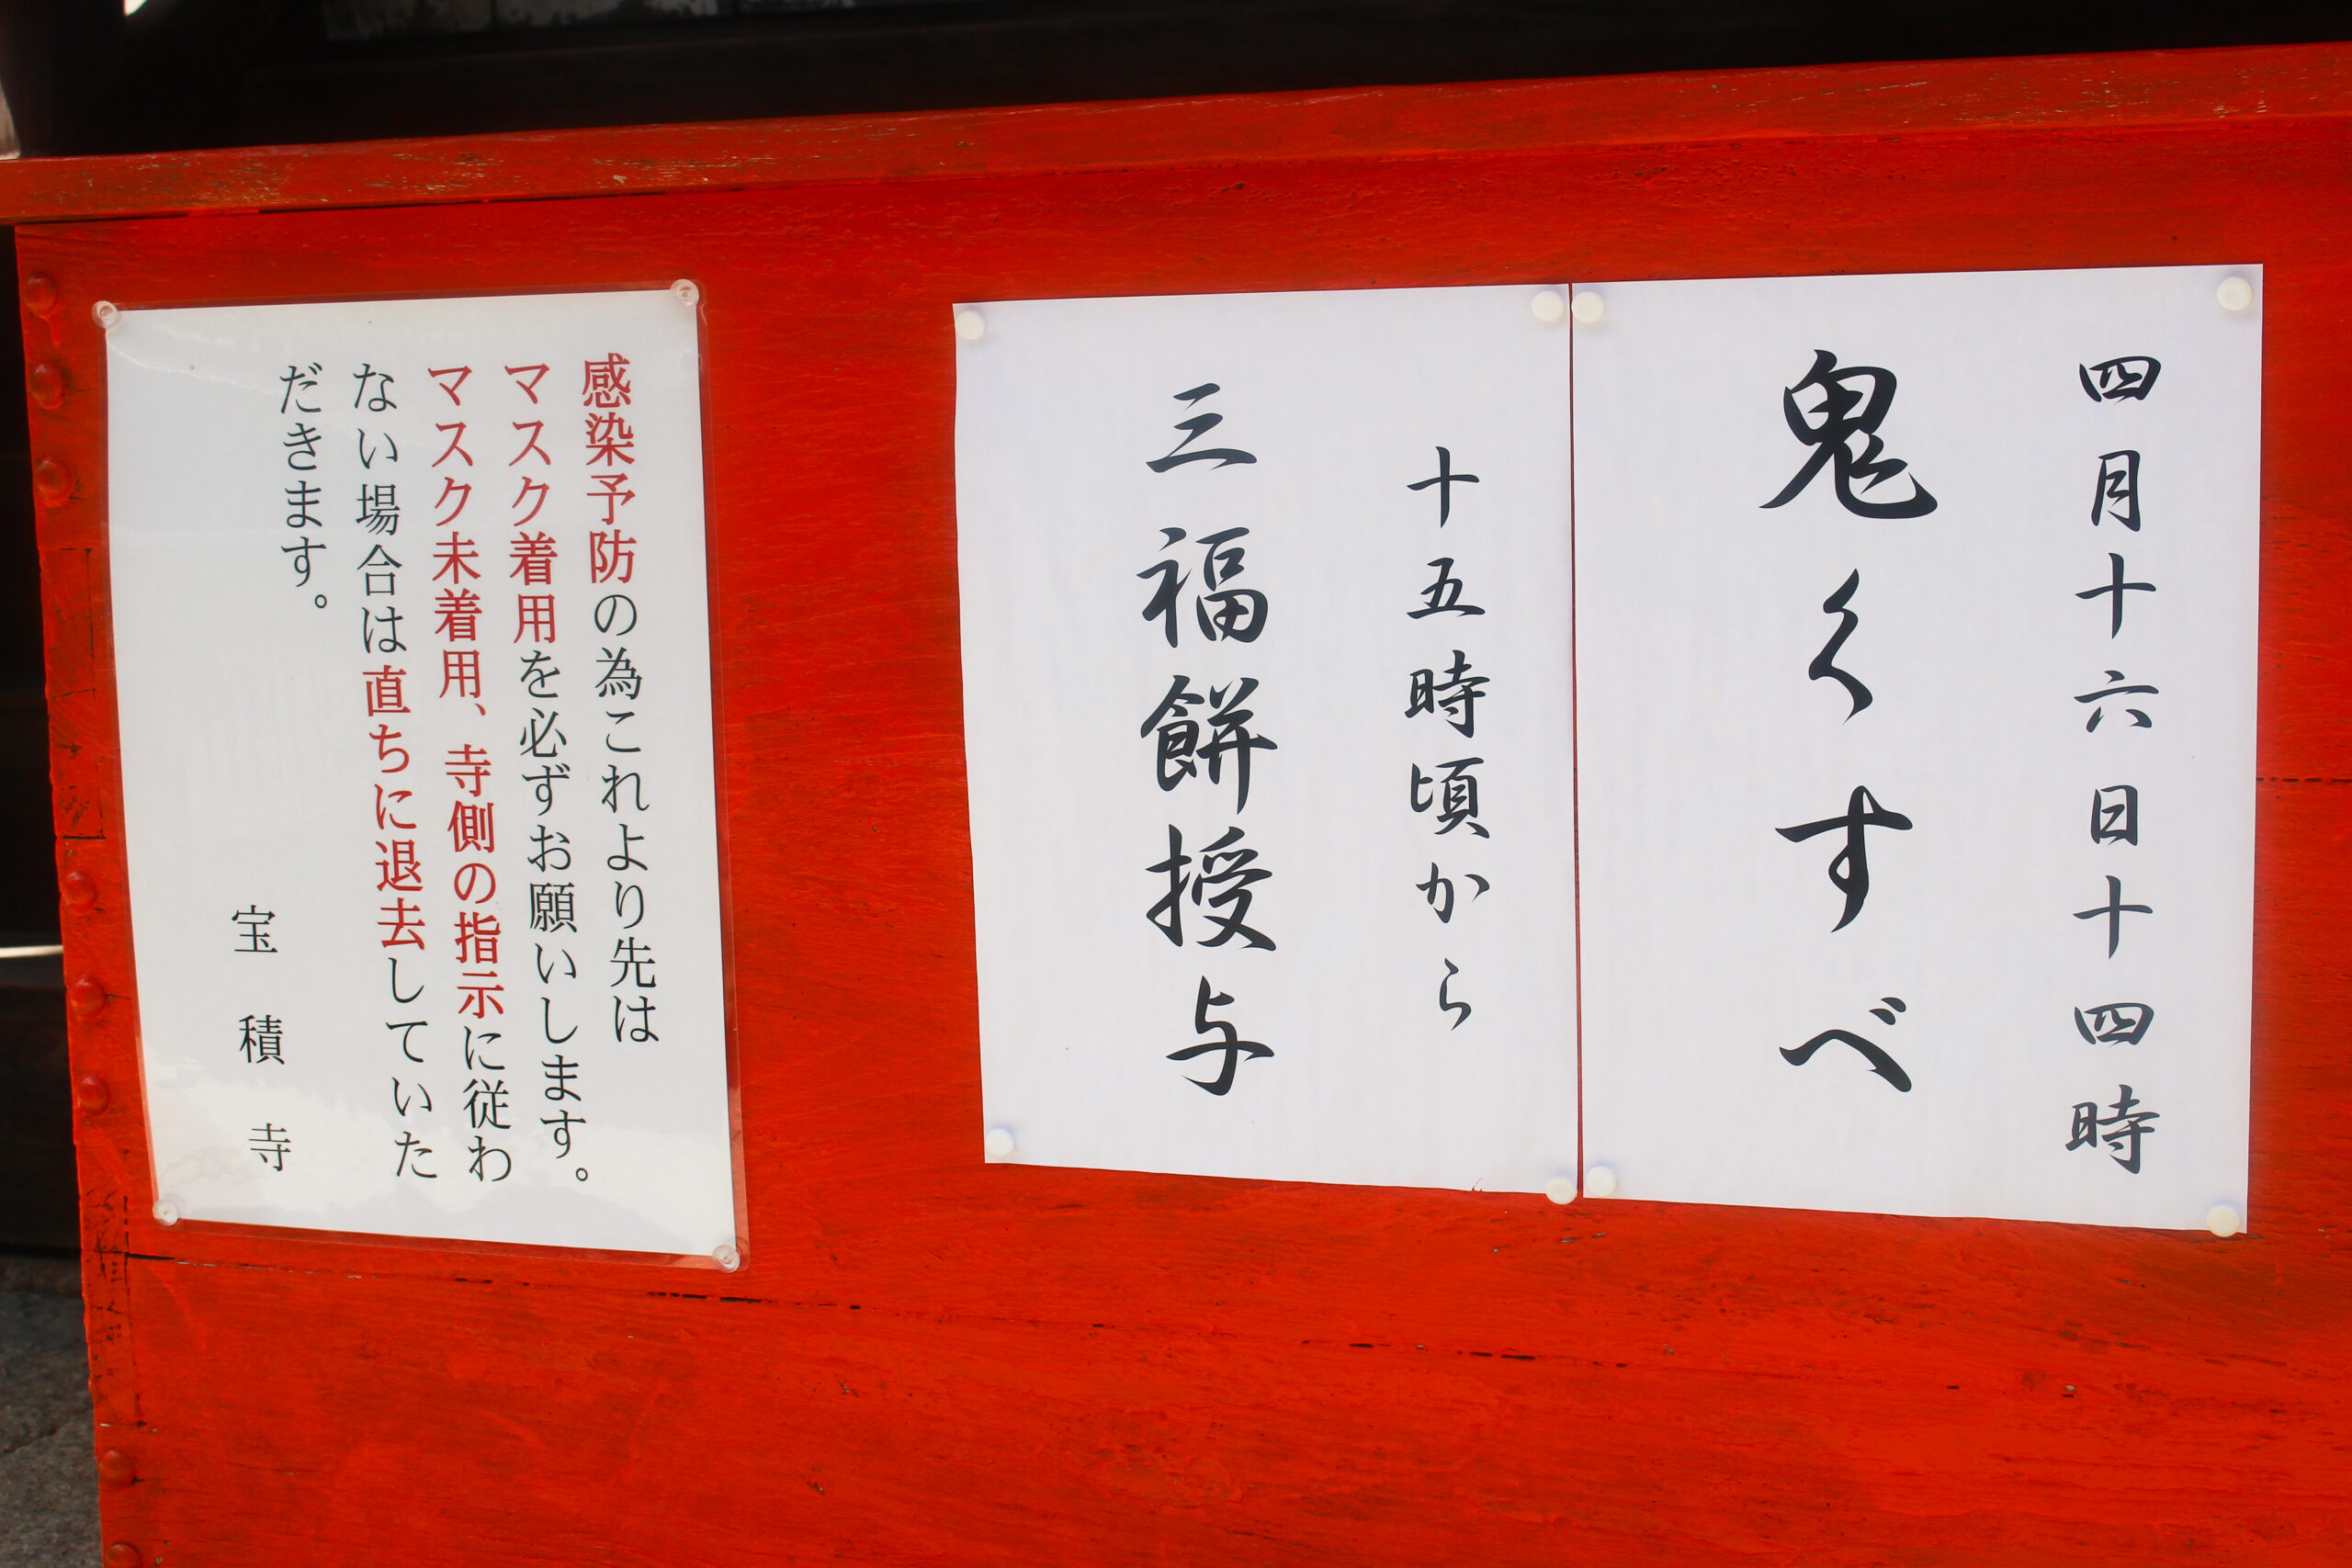 四月十六日十四時
鬼くすべ
十五時頃から
三福餅授与
感染予防の為これより先は
マスク着用を必ずお願いします。
マスク未着用、寺側の指示に従わ
ない場合は直ちに退去していた
だきます。
宝積寺